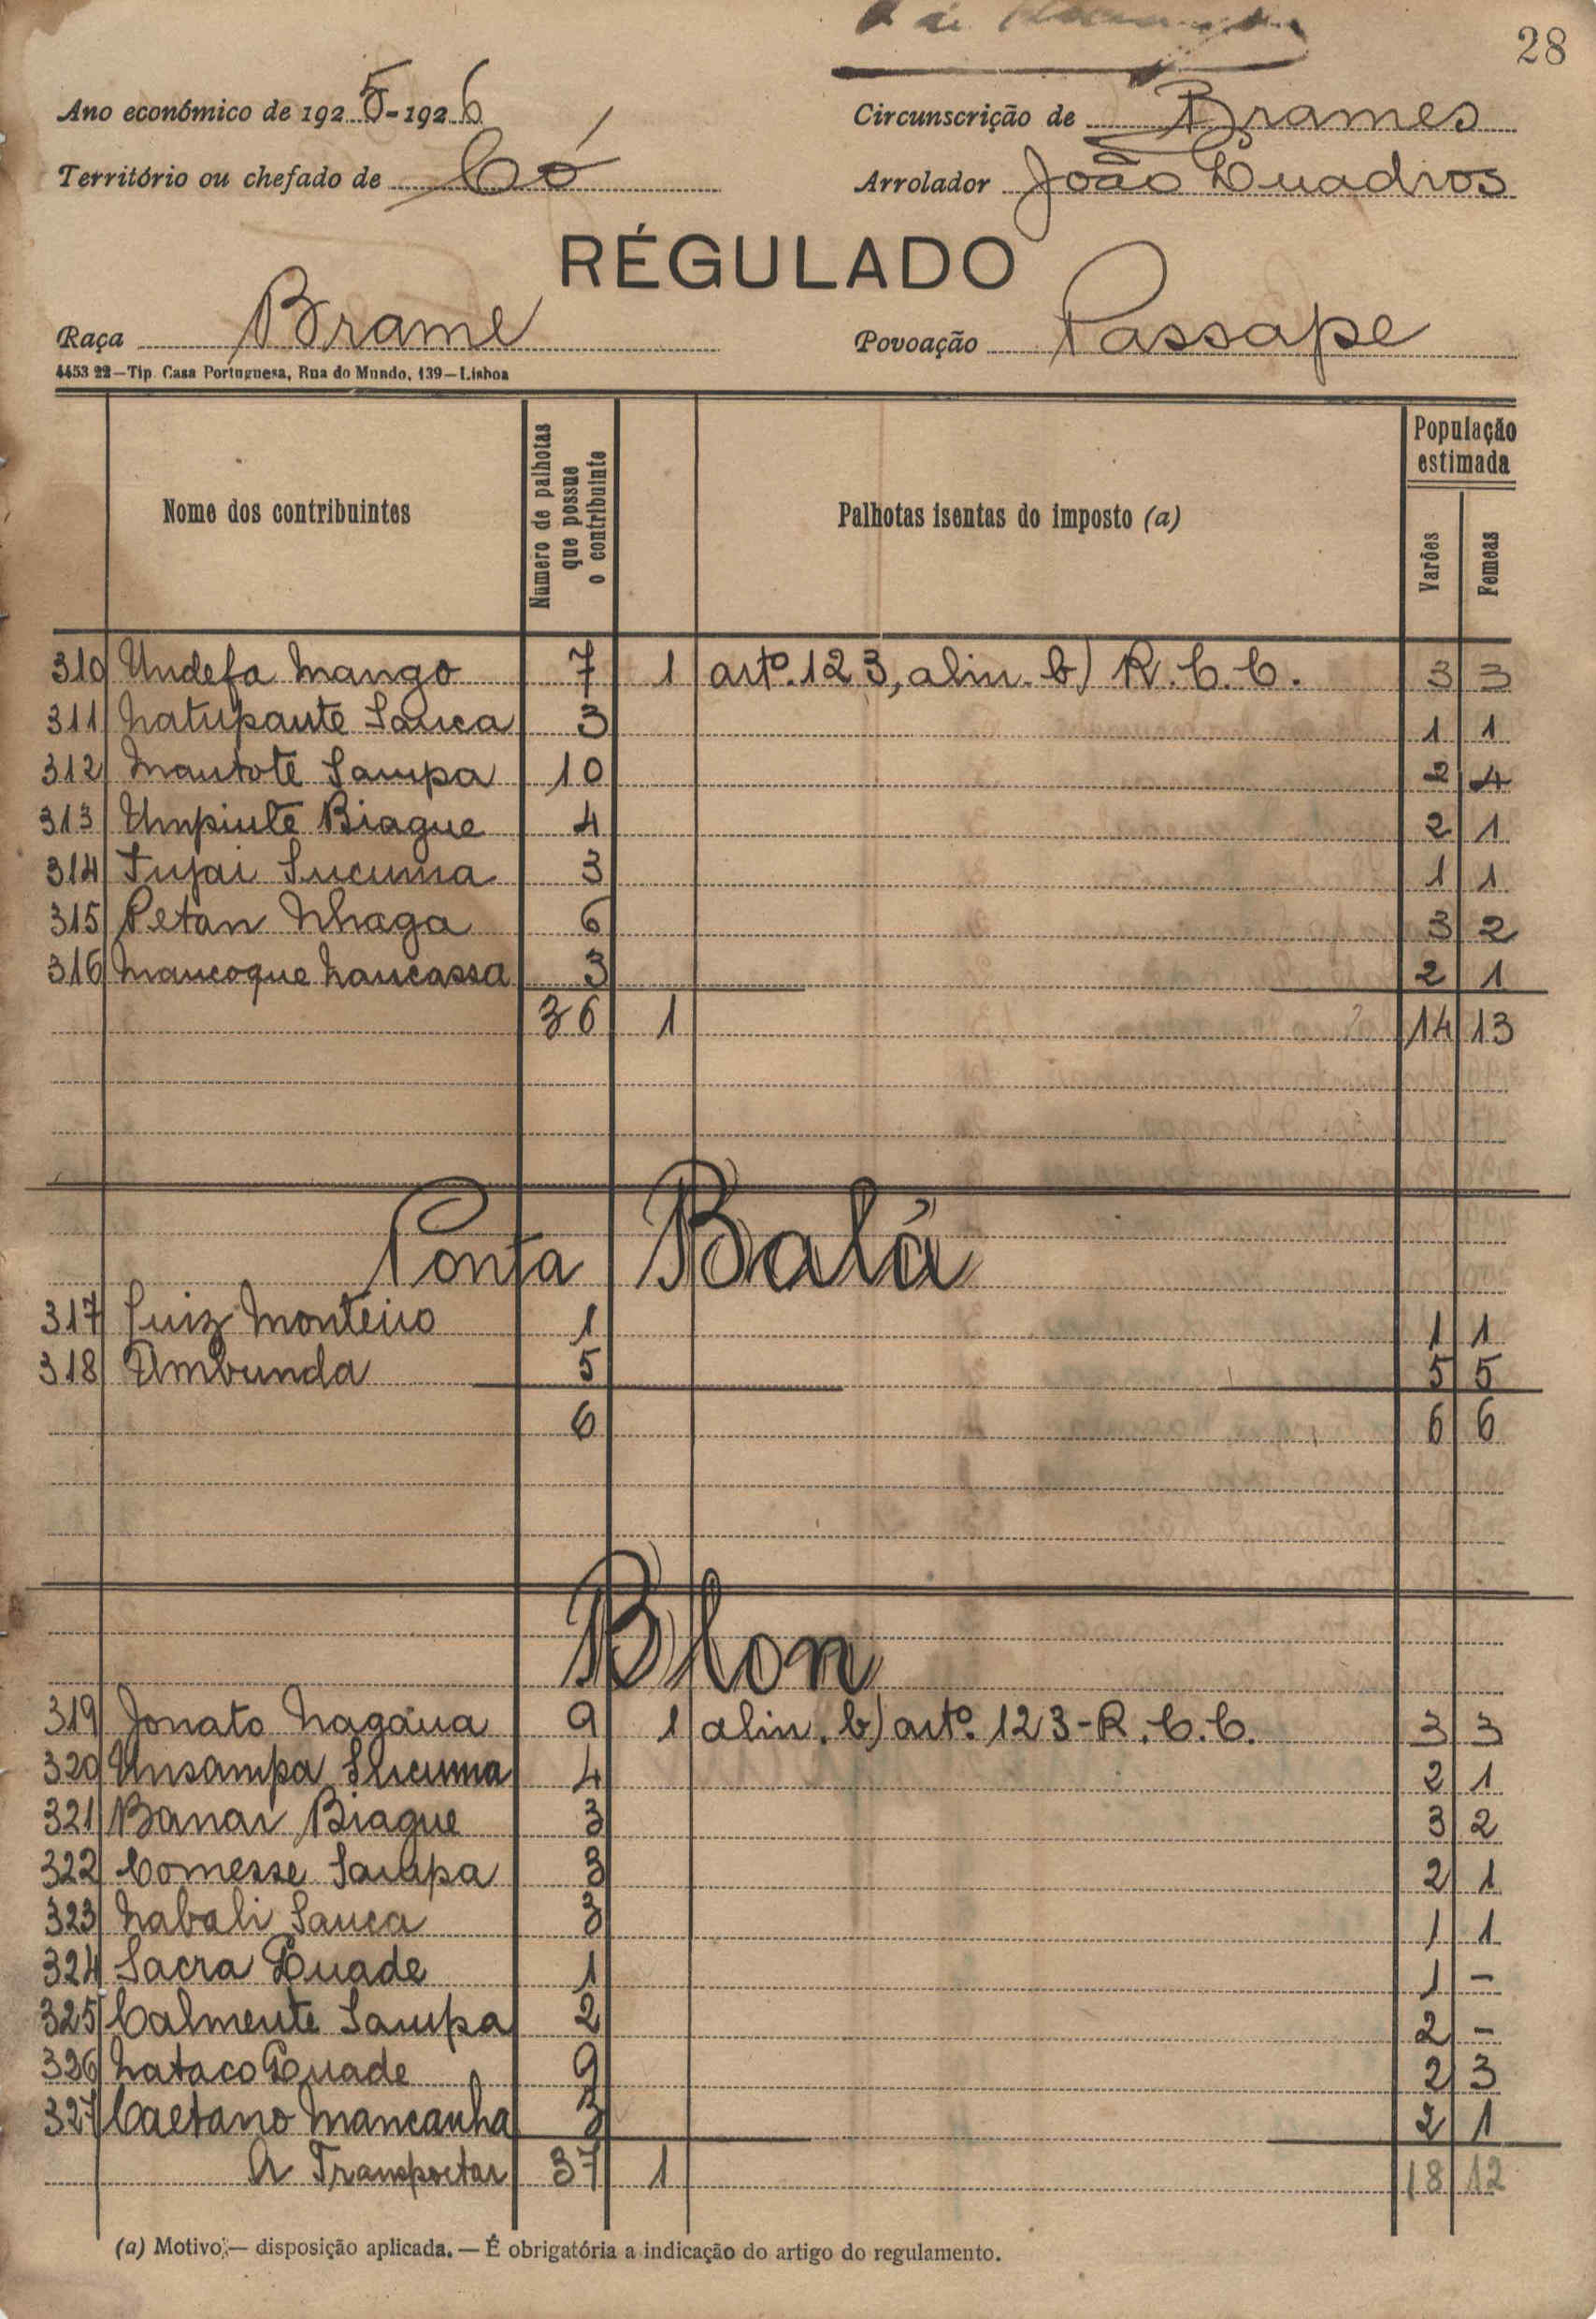 28
Ano económico de 1925-1926 Circunscrição de Brames
Território ou chefado de Có Arrolador João Quadros
RÉGULADO
Raça Brame Povoação Passape
4453 22—Tip. Casa Portuguesa, Rua do Mundo, 139—Lisboa
Nome dos contribuintes Numero de palhotas que possue o contribuinte Palhotas isentas do imposto (a) População estimada Varões Femeas
310 Undefa Mango 7 1 artº. 123, alin. b) R. C. C. 3 3
311 Natupante Sanca 3 1 1
312 Mantote Sampa 10 2 4
313 Umpinte Biague 4 2 1
314 Tujai Sucuma 3 1 1
315 Petan Nhaga 6 3 2
316 Mancoque Nancassa 3 2 1
36 1 14 13
Ponta Balá
317 Luiz Monteiro 1 1 1
318 Umbunda 5 5 5
6 6 6
Blon
319 Jonato Nagána 9 1 alin. b) artº. 123-R. C. C. 3 3
320 Unsampa Sucuma 4 2 1
321 Banar Biague 3 3 2
322 Comesse Sampa 3 2 1
323 Nabali Sanca 3 1 1
324 Sacra Quade 1 1 -
325 Calmente Sampa 2 2 -
326 Nataco Quade 9 2 3
327 Caetano Mancanha 3 2 1
A Transportar 37 1 18 12
(a) Motivo;— disposição aplicada. — É obrigatória a indicação do artigo do regulamento.